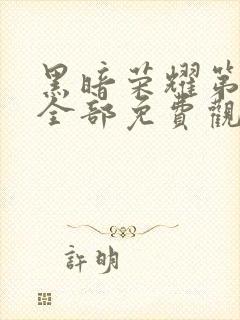 黑暗荣耀第
全部免費觀
許明